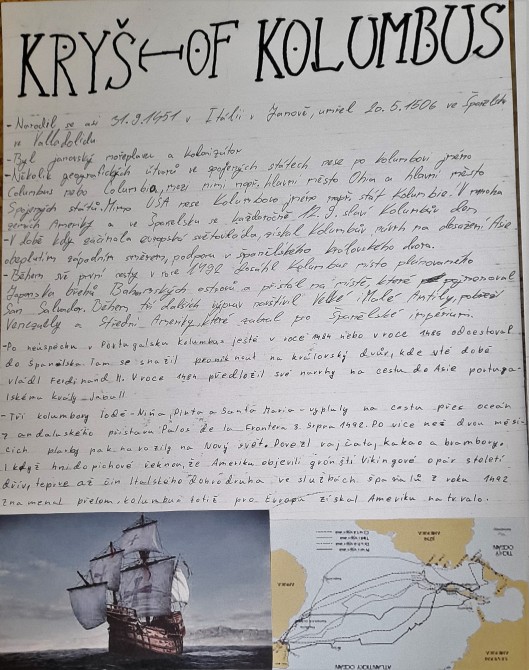 KRYŠTOF KOLUMBUS
- Narodil se asi 31.9.1451 v Itálii v Janově, umřel 20.5.1506 ve Španělsku
ve Valladolidu
- Byl janovský mořeplavec a kolonizátor
- Několik geografických útvarů ve spojených státech nese po Kolumbovi jméno
Columbus nebo Columbia, mezi nimi např. hlavní město Ohia a hlavní město
Spojených států. Mimo USA nese Kolumbovo jméno např. stát Kolumbie. V mnoha
zemích Ameriky a ve Španělsku se každoročně 12.9. slaví Kolumbův den.
- V době kdy začínala evropská světovláda, získal Kolumbův návrh na dosažení Asie
západním směrem, podporu v španělského královského dvora.
- Během své první cesty v roce 1492 dosáhl Kolumbus místo plánovaného
Japonska břehů Bahamských ostrovů a přistál na místě, které pojmenoval
San Salvador. Během tří dalších výprav navštívil Velké i Malé Antily, pobřeží
Venezuely a Střední Ameriky, které zabral pro Španělské impérium.
- Po neúspěchu v Portugalsku Kolumbus ještě v roce 1484 nebo v roce 1486 odcestoval
do Španělska. Tam se snažil proniknout na královský dvůr, kde v té době
vládl Ferdinand II. V roce 1484 předložil své návrhy na cestu do Asie portuga-
lskému králi
- Tři kolumbovy lodě - Niña, Pinta a Santa María - vypluly na cestu přes oceán
z andaluského přístavu Palos de la Frontera 3. srpna 1492. Po více než dvou měsí-
cích plavby pak narazily na Nový svět. Povezl rajčata, kakao a brambory.
I když hnidopichové řeknou, že Ameriku objevili grónští Vikingové o pár století
dřív, teprve až čin Italského dobrodruha ve službách španělů z roku 1492
znamenal přelom. Kolumbus totiž pro Evropu získal Ameriku natrvalo.
TICHÝ
OCEÁN
JIŽNÍ
AMERIKA
SEVERNÍ
AMERIKA
AFRIKA
ATLANTICKÝ
OCEÁN